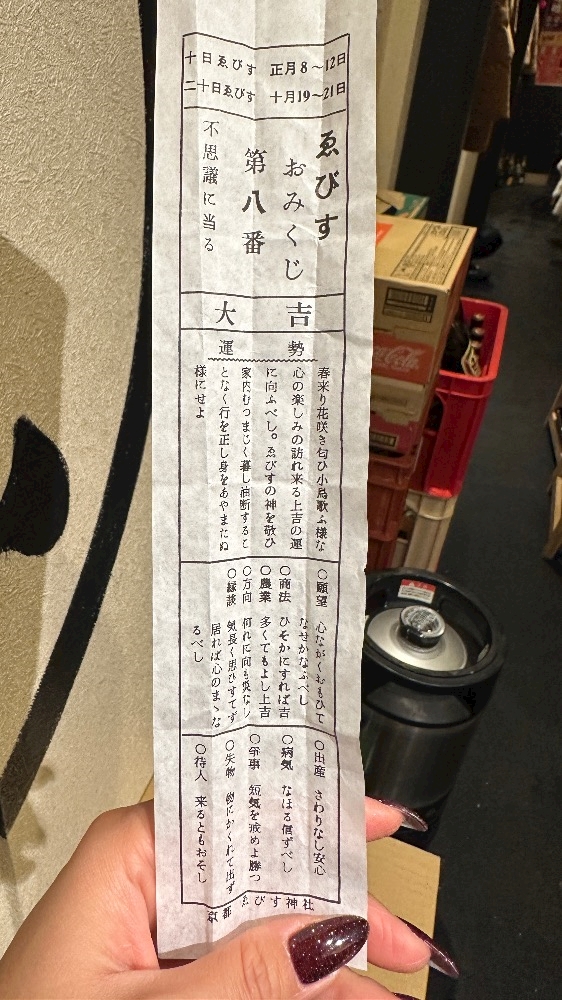 十日ゑびす 正月8〜12日
二十日ゑびす 十月19〜21日
ゑびす
おみくじ
第八番
不思議に当る
大吉
運勢
春来り花咲き匂ひ小鳥歌ふ様な
心の楽しみの訪れ来る上吉の運
に向ふべし。ゑびすの神を敬ひ
家内むつまじく暮し油断するこ
となく行を正し身をあやまたぬ
様にせよ
○願望 心ながくおもひて
なせかなふべし
○商法 ひそかにすれば吉
○農業 多くてもよし上吉
○方向 何れに向も災なし
○縁談 気長く思ひすてず
居れば心のまゝな
るべし
○出産 さわりなし安心
○病気 なほる信ずべし
○争事 短気を戒めよ勝つ
○失物 物にかくれて出ず
○待人 来るともおそし
京都ゑびす神社
Coca-Cola